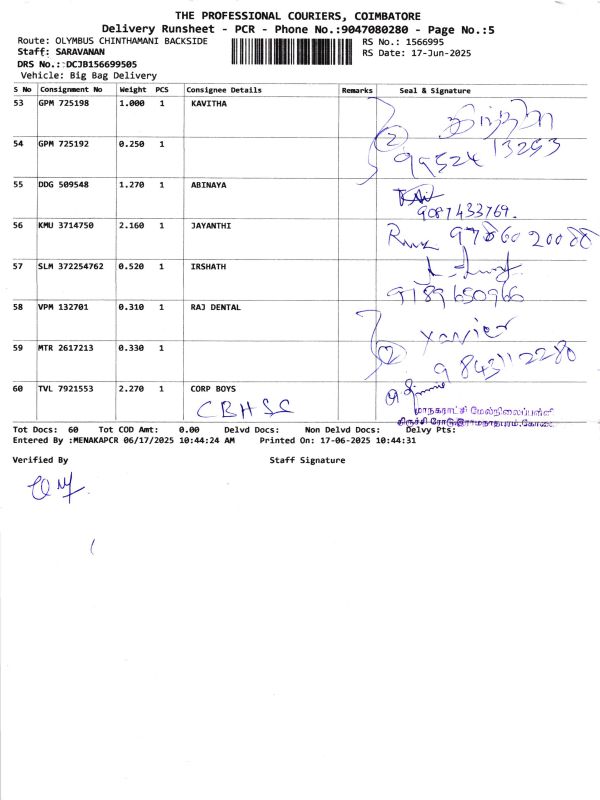 THE PROFESSIONAL COURIERS, COIMBATORE
Delivery Runsheet - PCR - Phone No.:9047080280 - Page No.:5
Route: OLYMBUS CHINTHAMANI BACKSIDE RS No.: 1566995
Staff: SARAVANAN RS Date: 17-Jun-2025
DRS No.: :DCJB156699505
Vehicle: Big Bag Delivery
S No Consignment No Weight PCS Consignee Details Remarks Seal & Signature
53 GPM 725198 1.000 1 KAVITHA
2
54 GPM 725192 0.250 1 99524 13253
55 DDG 509548 1.270 1 ABINAYA
9087433769.
56 KMU 3714750 2.160 1 JAYANTHI 97860 20088
57 SLM 372254762 0.520 1 IRSHATH
9189650966
58 VPM 132701 0.310 1 RAJ DENTAL Xavier
59 MTR 2617213 0.330 1 2 9843112280
60 TVL 7921553 2.270 1 CORP BOYS
CBHSS மாநகராட்சி மேல்நிலைப்பள்ளி
திருச்சி ரோடு,இராமநாதபுரம்,கோவை.
Tot Docs: 60 Tot COD Amt: 0.00 Delvd Docs: Non Delvd Docs: Delvy Pts:
Entered By :MENAKAPCR 06/17/2025 10:44:24 AM Printed On: 17-06-2025 10:44:31
Verified By Staff Signature